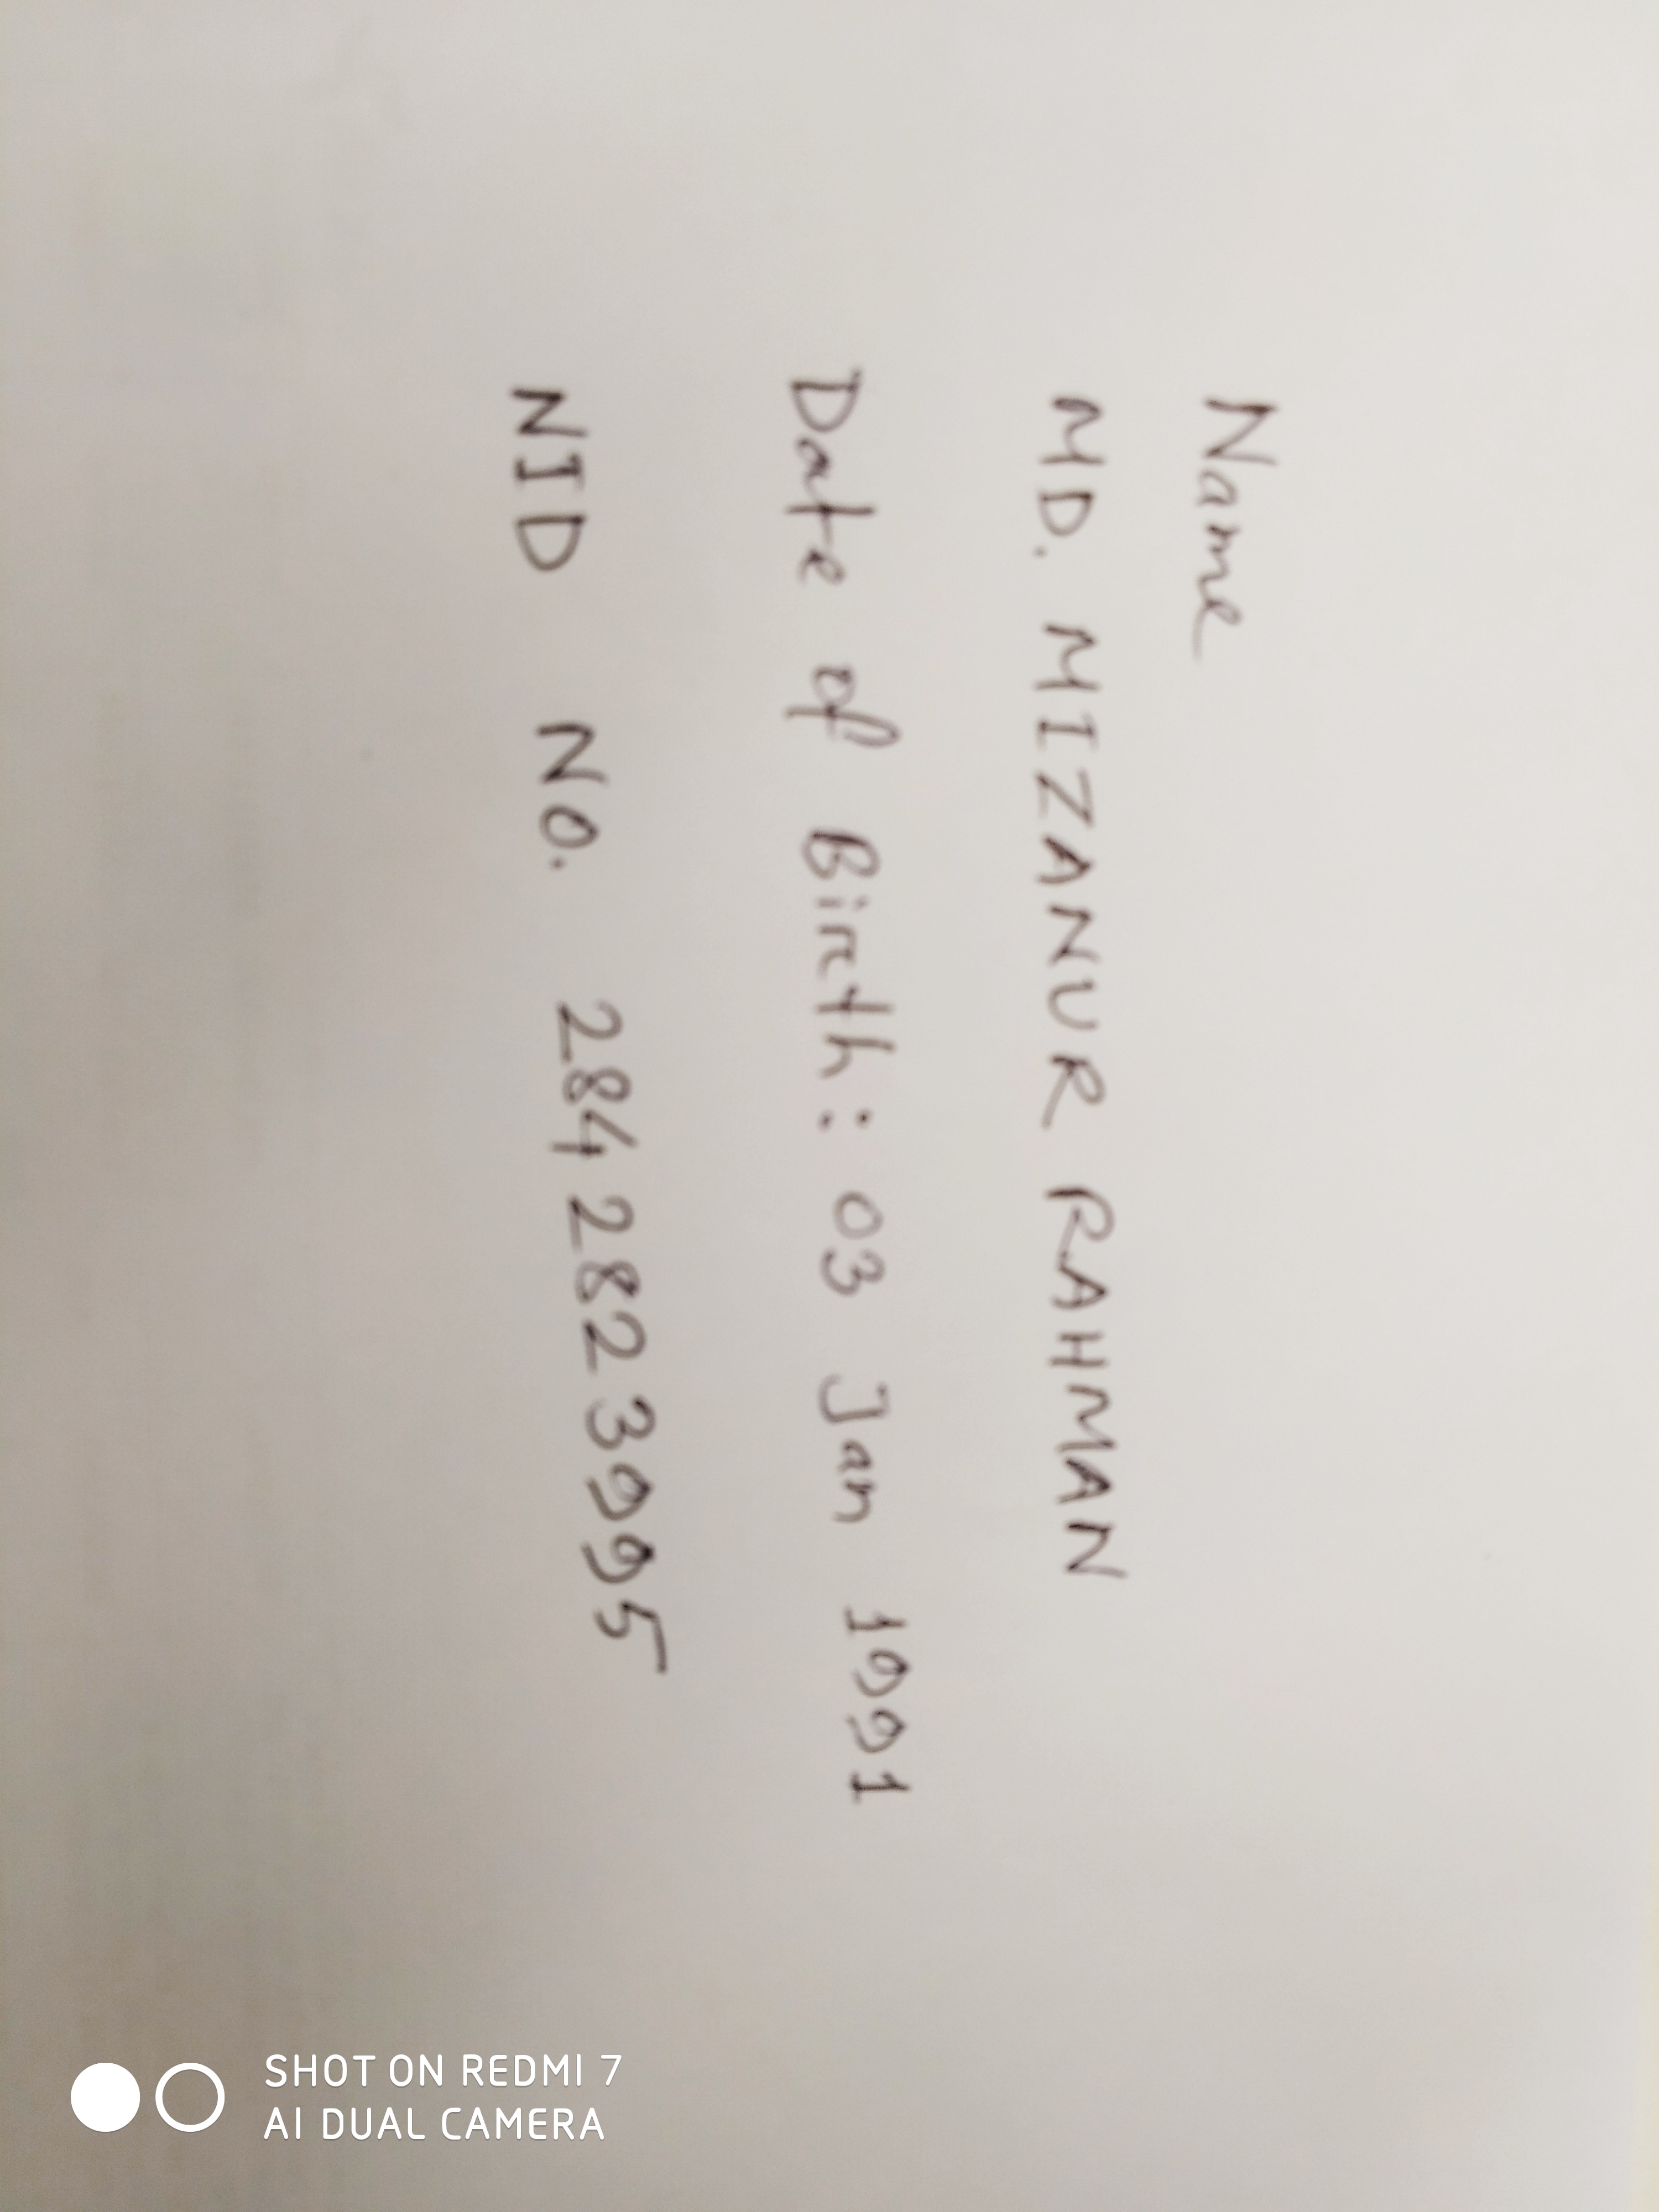 Name
MD. MIZANUR RAHMAN
Date of Birth: 03 Jan 1991
NID No. 2842823995
SHOT ON REDMI 7
AI DUAL CAMERA